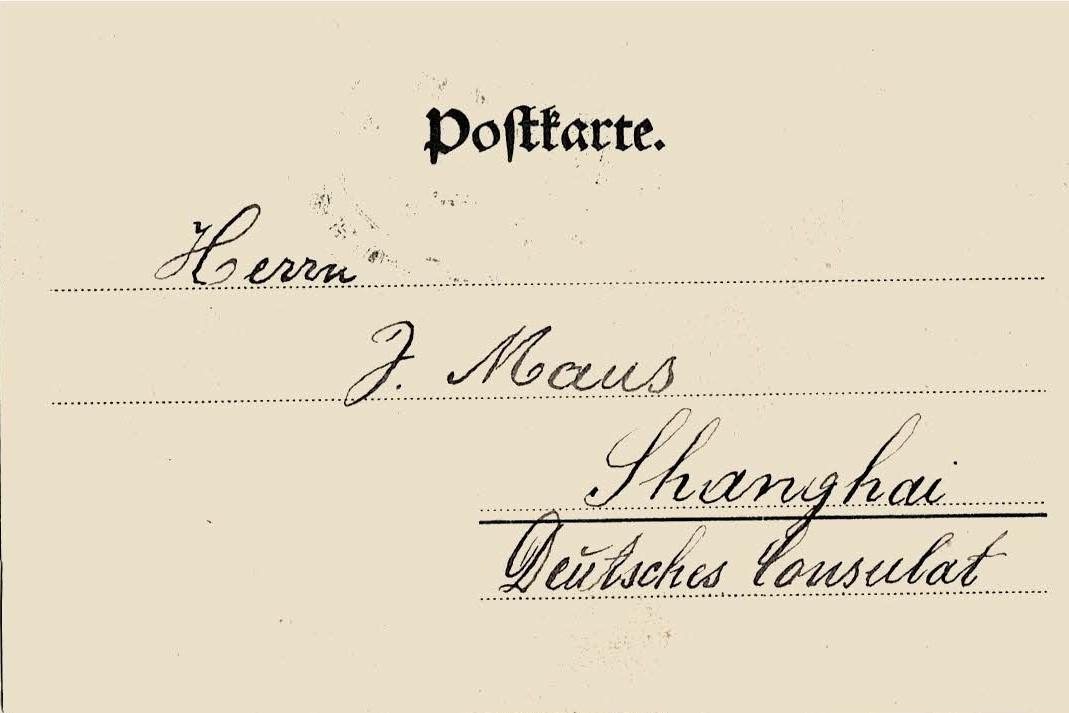 Postkarte.
Herrn
J. Maus
Shanghai
Deutsches Consulat